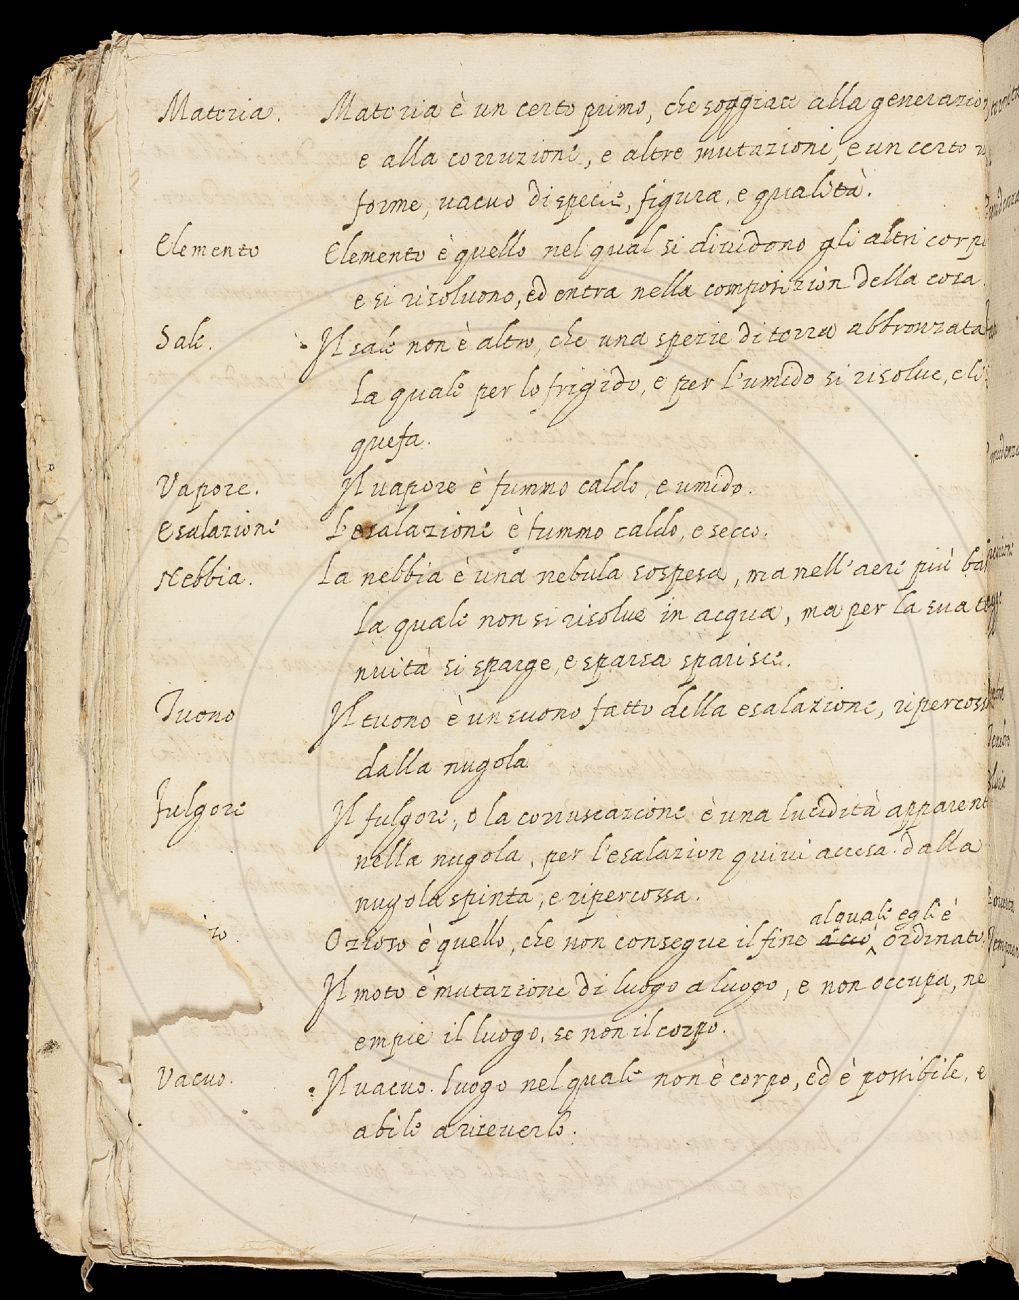 Materia. Materia è un certo primo, che soggiace alla generazio
e alla corruzione, e altre mutazioni, e un certo
forme, vacuo di specie, figura, e qualità.
Elemento Elemento è quello nel qual si dividono gli altri corpi
e si risolvono, ed entra nella composizion della cosa
Sale. Il sale non è altro, che una spezie di terra abbronzata
la quale per lo frigido, e per l'umido si risolve, e li
quefa.
Vapore. Il vapore è fummo caldo, e umido.
Esalazione L'esalazione è fummo caldo, e secco.
Nebbia. La nebbia è una nebula sospesa, ma nell'aere più bas
la quale non si risolve in acqua, ma per la sua te
nuità si sparge, e sparsa sparisce.
Tuono Il tuono è un suono fatto della esalazione, ripercoss
dalla nugola
Fulgore Il fulgore, o la corruscazione è una lucidità apparent
nella nugola, per l'esalazion quivi accesa dalla
nugola spinta, e ripercossa.
al quale egli è
io. Ozioso è quello, che non consegue il fine a ciò ordinato.
Il moto è mutazione di luogo a luogo, e non occupa, ne
empie il luogo, se non il corpo.
Vacuo. Il vacuo. luogo nel quale non è corpo, ed è possibile, e
abile a riceverlo.